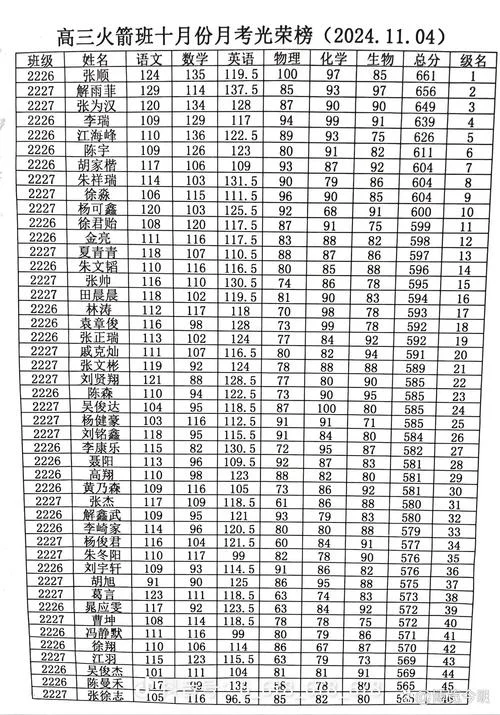 高三火箭班十月份月考光荣榜（2024.11.04）
班级 姓名 语文 数学 英语 物理 化学 生物 总分 级名
2226 张顺 124 135 119.5 100 97 85 661 1
2227 解雨菲 129 114 137.5 85 93 97 656 2
2227 张为汉 120 134 128 87 90 90 649 3
2226 李瑞 109 129 117 94 99 91 639 4
2226 江海峰 110 136 122.5 89 93 75 626 5
2226 陈宇 109 126 123 80 91 82 611 6
2226 胡家楷 117 106 109 93 87 92 604 7
2227 朱祥瑞 114 103 131.5 90 79 86 604 8
2227 徐淼 106 115 111.5 96 90 85 604 9
2227 杨可鑫 120 103 125.5 92 68 91 600 10
2226 徐君贻 108 120 117.5 87 91 75 599 11
2226 金亮 111 116 117.5 83 88 82 598 12
2227 夏青青 118 107 110.5 88 87 86 597 13
2226 朱文韬 110 116 116.5 80 85 88 596 14
2227 张帅 116 110 130.5 74 86 78 595 15
2227 田晨晨 118 102 119.5 81 90 83 594 16
2226 林涛 112 117 118 70 98 78 593 17
2226 袁章俊 116 98 128 73 99 78 592 18
2226 张正瑞 113 102 124 77 84 92 592 19
2227 戚克灿 111 107 116.5 80 82 94 591 20
2227 张文彬 119 92 124 78 88 88 589 21
2227 刘贤翔 121 88 128.5 77 80 90 585 22
2226 陈森 110 94 122.5 73 90 95 585 23
2227 吴俊达 104 95 118.5 87 100 80 585 24
2227 杨健豪 103 116 112.5 91 91 71 585 25
2227 刘铭鑫 118 95 115.5 91 84 80 584 26
2226 李康乐 115 82 130.5 72 95 87 582 27
2226 聂阳 113 96 109.5 92 87 83 581 28
2226 高翔 110 98 123 88 82 80 581 29
2226 黄乃森 109 116 105 73 86 92 581 30
2227 张杰 117 109 118.5 61 86 88 580 31
2226 解鑫武 109 95 121 93 79 83 580 32
2226 李崎家 114 96 120.5 80 80 88 579 33
2227 杨俊君 116 104 121.5 60 84 91 577 34
2227 朱冬阳 110 117 99 82 78 90 576 35
2226 刘宇轩 109 93 114.5 91 86 82 576 36
2227 胡旭 91 90 125 86 95 88 575 37
2227 葛言 123 111 118.5 63 74 83 573 38
2226 晁应雯 117 92 123.5 63 84 92 572 39
2227 曹坤 108 114 118.5 78 78 75 572 40
2226 冯静默 111 116 99 80 79 86 571 41
2226 徐翔 110 106 114 86 67 87 570 42
2227 江羽 115 123 115.5 63 79 73 569 43
2226 吴俊杰 101 111 104 81 81 91 569 44
2226 陈曼禾 117 99
2227 张徐志 105 116 96.5